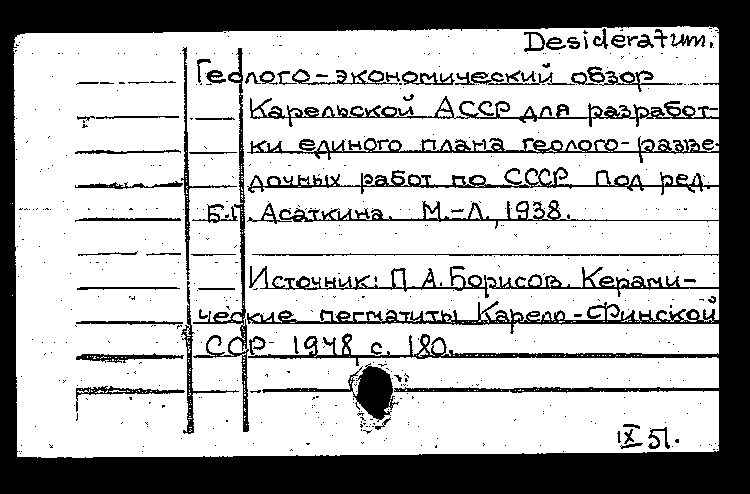 Desideratum.
Геолого-экономический обзор
Карельской АССР для разработ-
ки единого плана геолого-разве-
дочных работ по СССР. Под ред.
Б.П. Асаткина. М.-Л., 1938.
Источник: П.А. Борисов. Керами-
ческие пегматиты Карело-Финской
ССР 1948, с. 180.
IX 51.